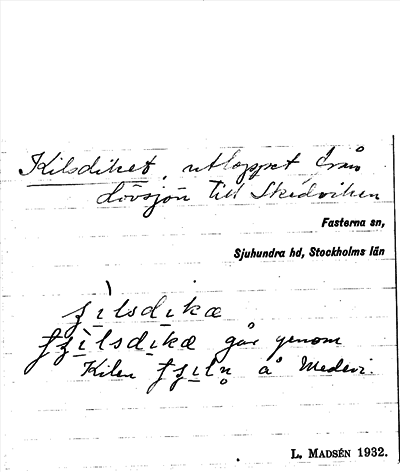 Kilsdiket, utloppet från
Lövsjön till Skedviken
Fasterna sn,
Sjuhundra hd, Stockholms län
går genom
Kilen å Medevi.
L. MADSÉN 1932.